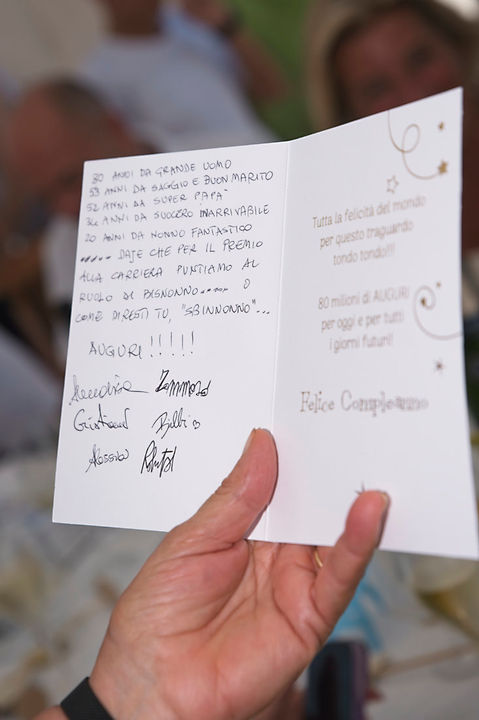 80 ANNI DA GRANDE UOMO
53 ANNI DA SAGGIO E BUON MARITO
52 ANNI DA SUPER PAPA'
34 ANNI DA SUOCERO INARRIVABILE
20 ANNI DA NONNO FANTASTICO
..... DAJE CHE PER IL PREMIO
ALLA CARRIERA PUNTIAMO AL
RUOLO DI BISNONNO..... O
COME DIRESTI TU, "SBINNONNO"...
AUGURI !!!!!
Alessio
Tutta la felicità del mondo
per questo traguardo
tondo tondo!!!
80 milioni di AUGURI
per oggi e per tutti
i giorni futuri!
Felice Compleanno